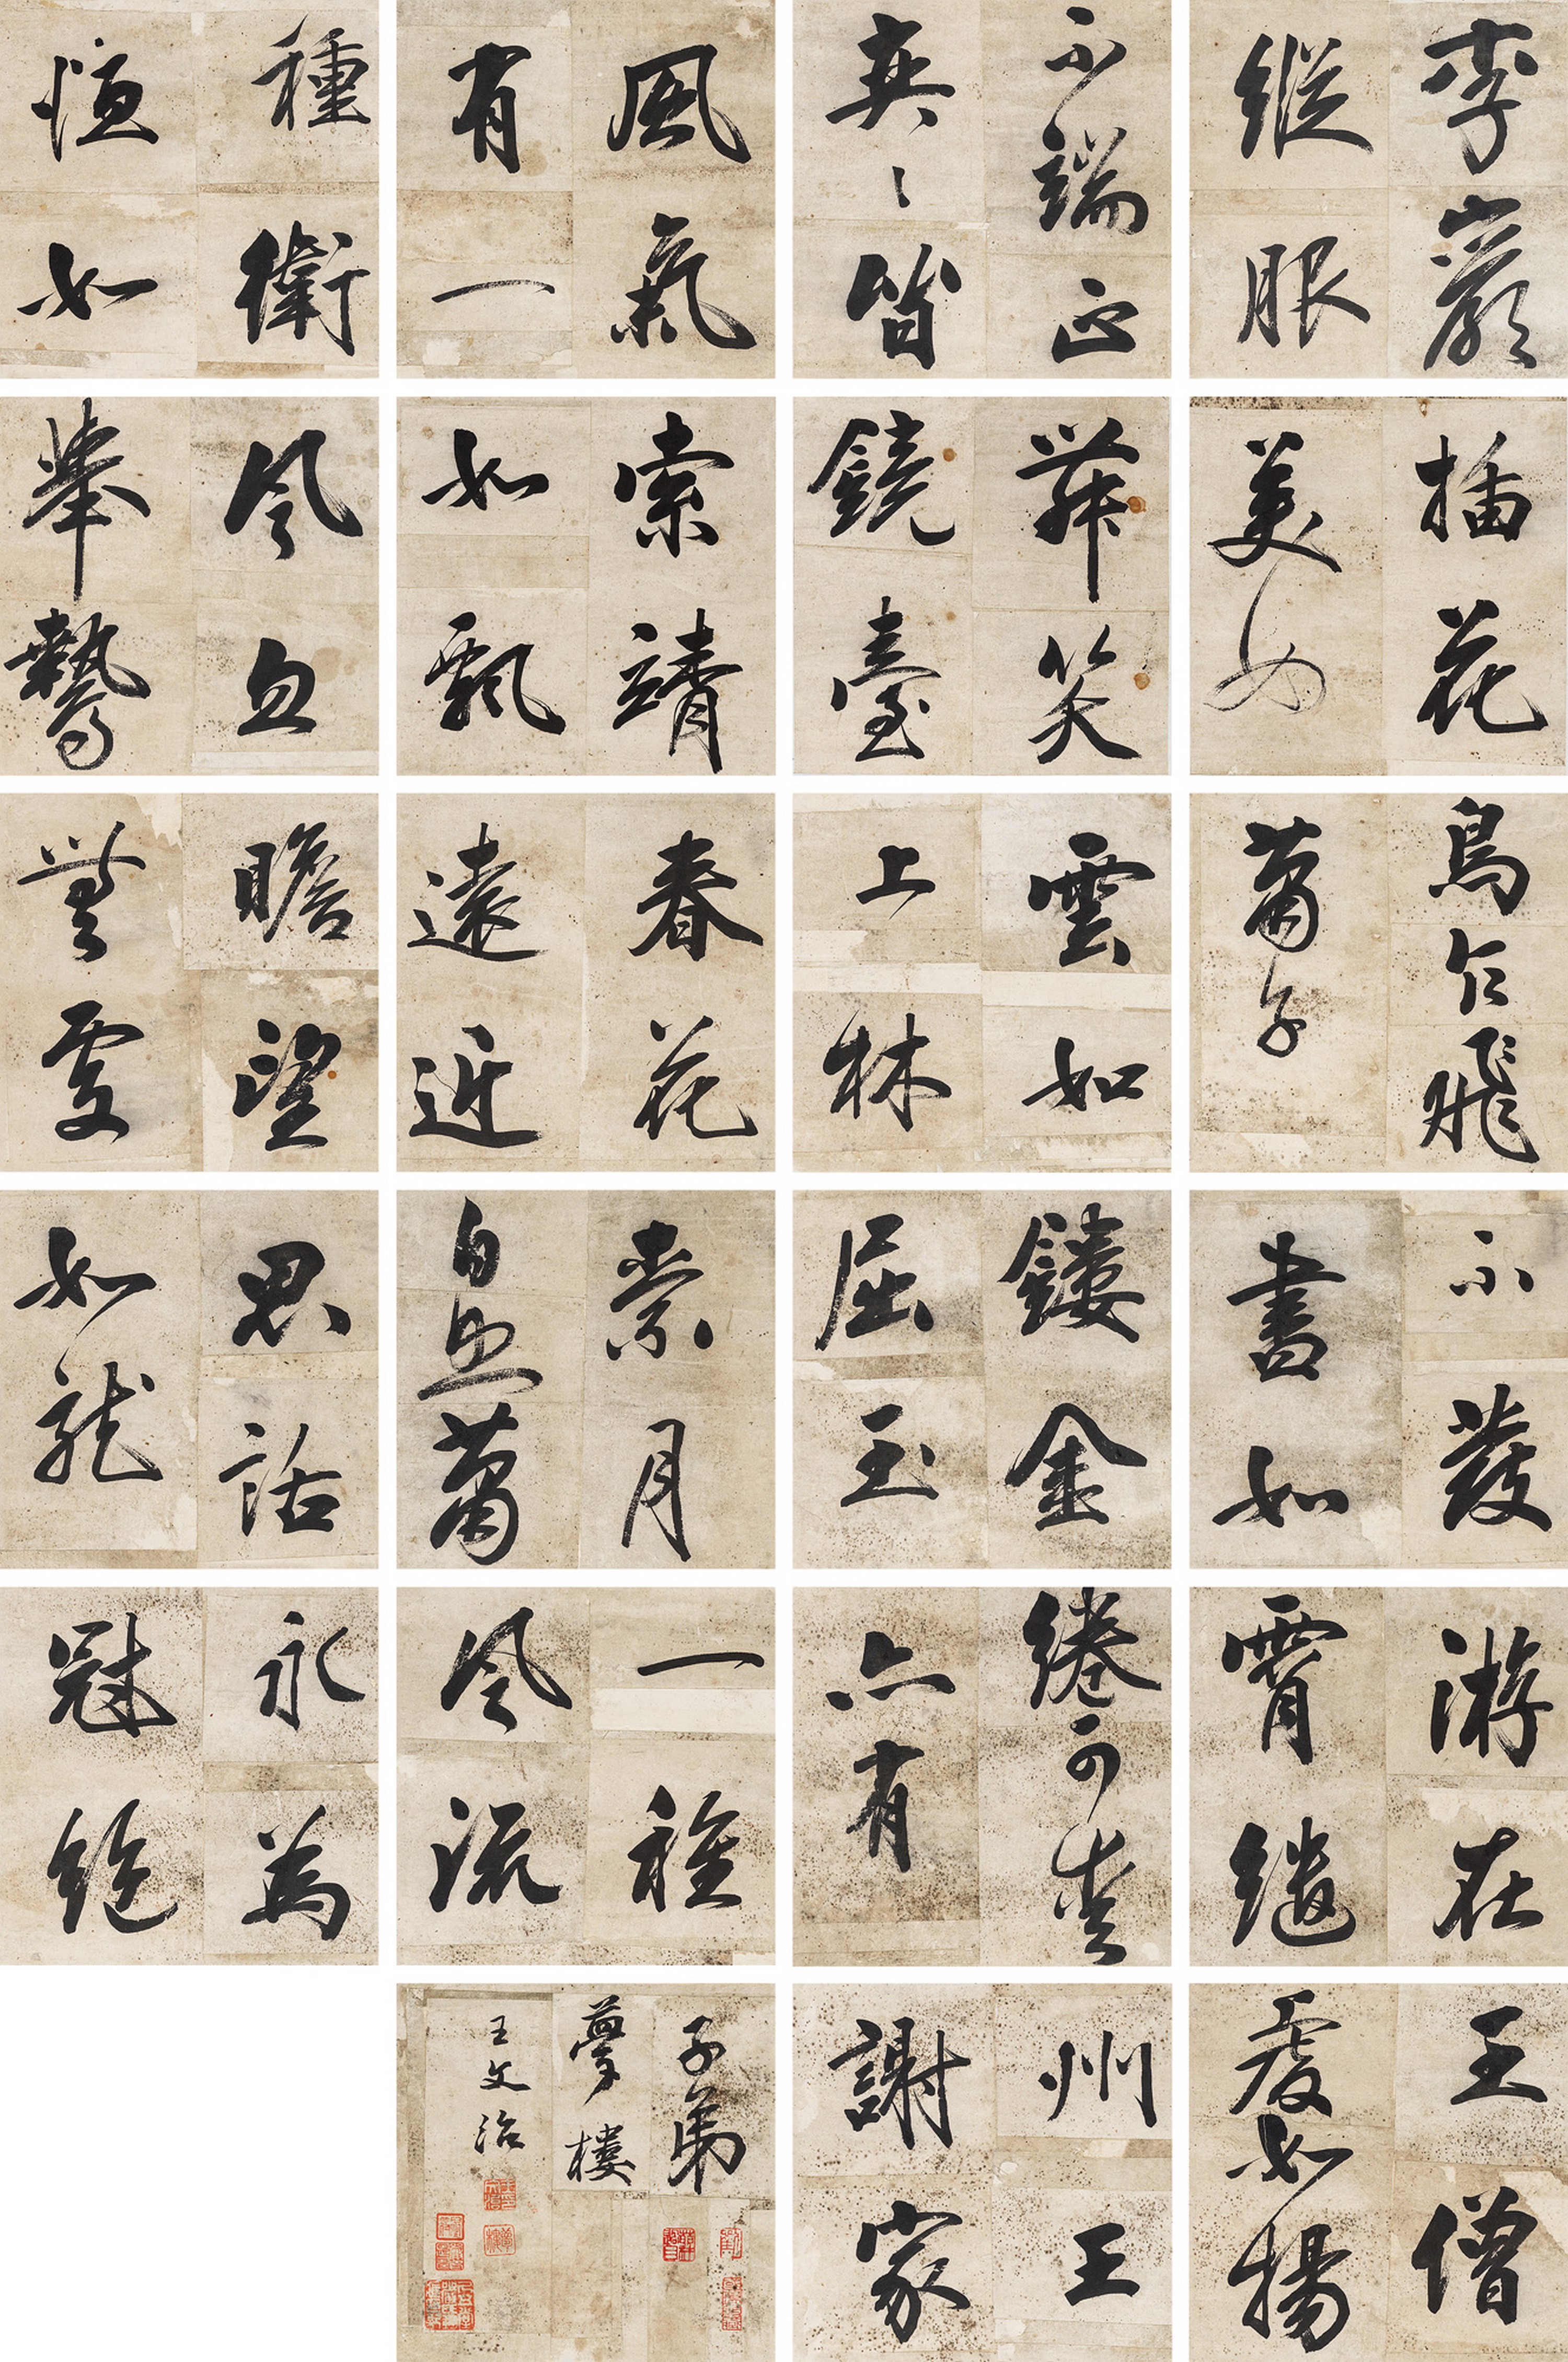 李巖
縱
不端正
奕〻皆
風氣
有一
種衛
恒如
插花
美女
舞笑
鏡臺
索靖
如飄
風忽
舉鷙
鳥乍飛
蕭子
雲如
上林
春花
遠近
瞻望
無處
不發
書如
鏤金
屈玉
素月
自照蕭
思話
如龍
游在
霄繾
綣可愛
亦有
一種
風流
永為
冠絕
王僧
虔如揚
州王
謝家
子弟
夢樓
王文治